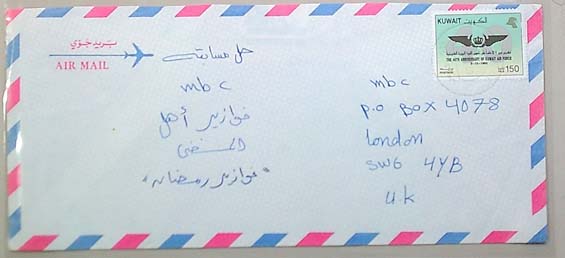 بريد جوي
AIR MAIL
حل مسابقة
mbc
فوازير أهل
"فوازير رمضان"
KUWAIT الكويت
THE 40TH ANNIVERSARY OF KUWAIT AIR FORCE
150
mbc
P.O BOX 4078
London
SW6 4YB
U.K